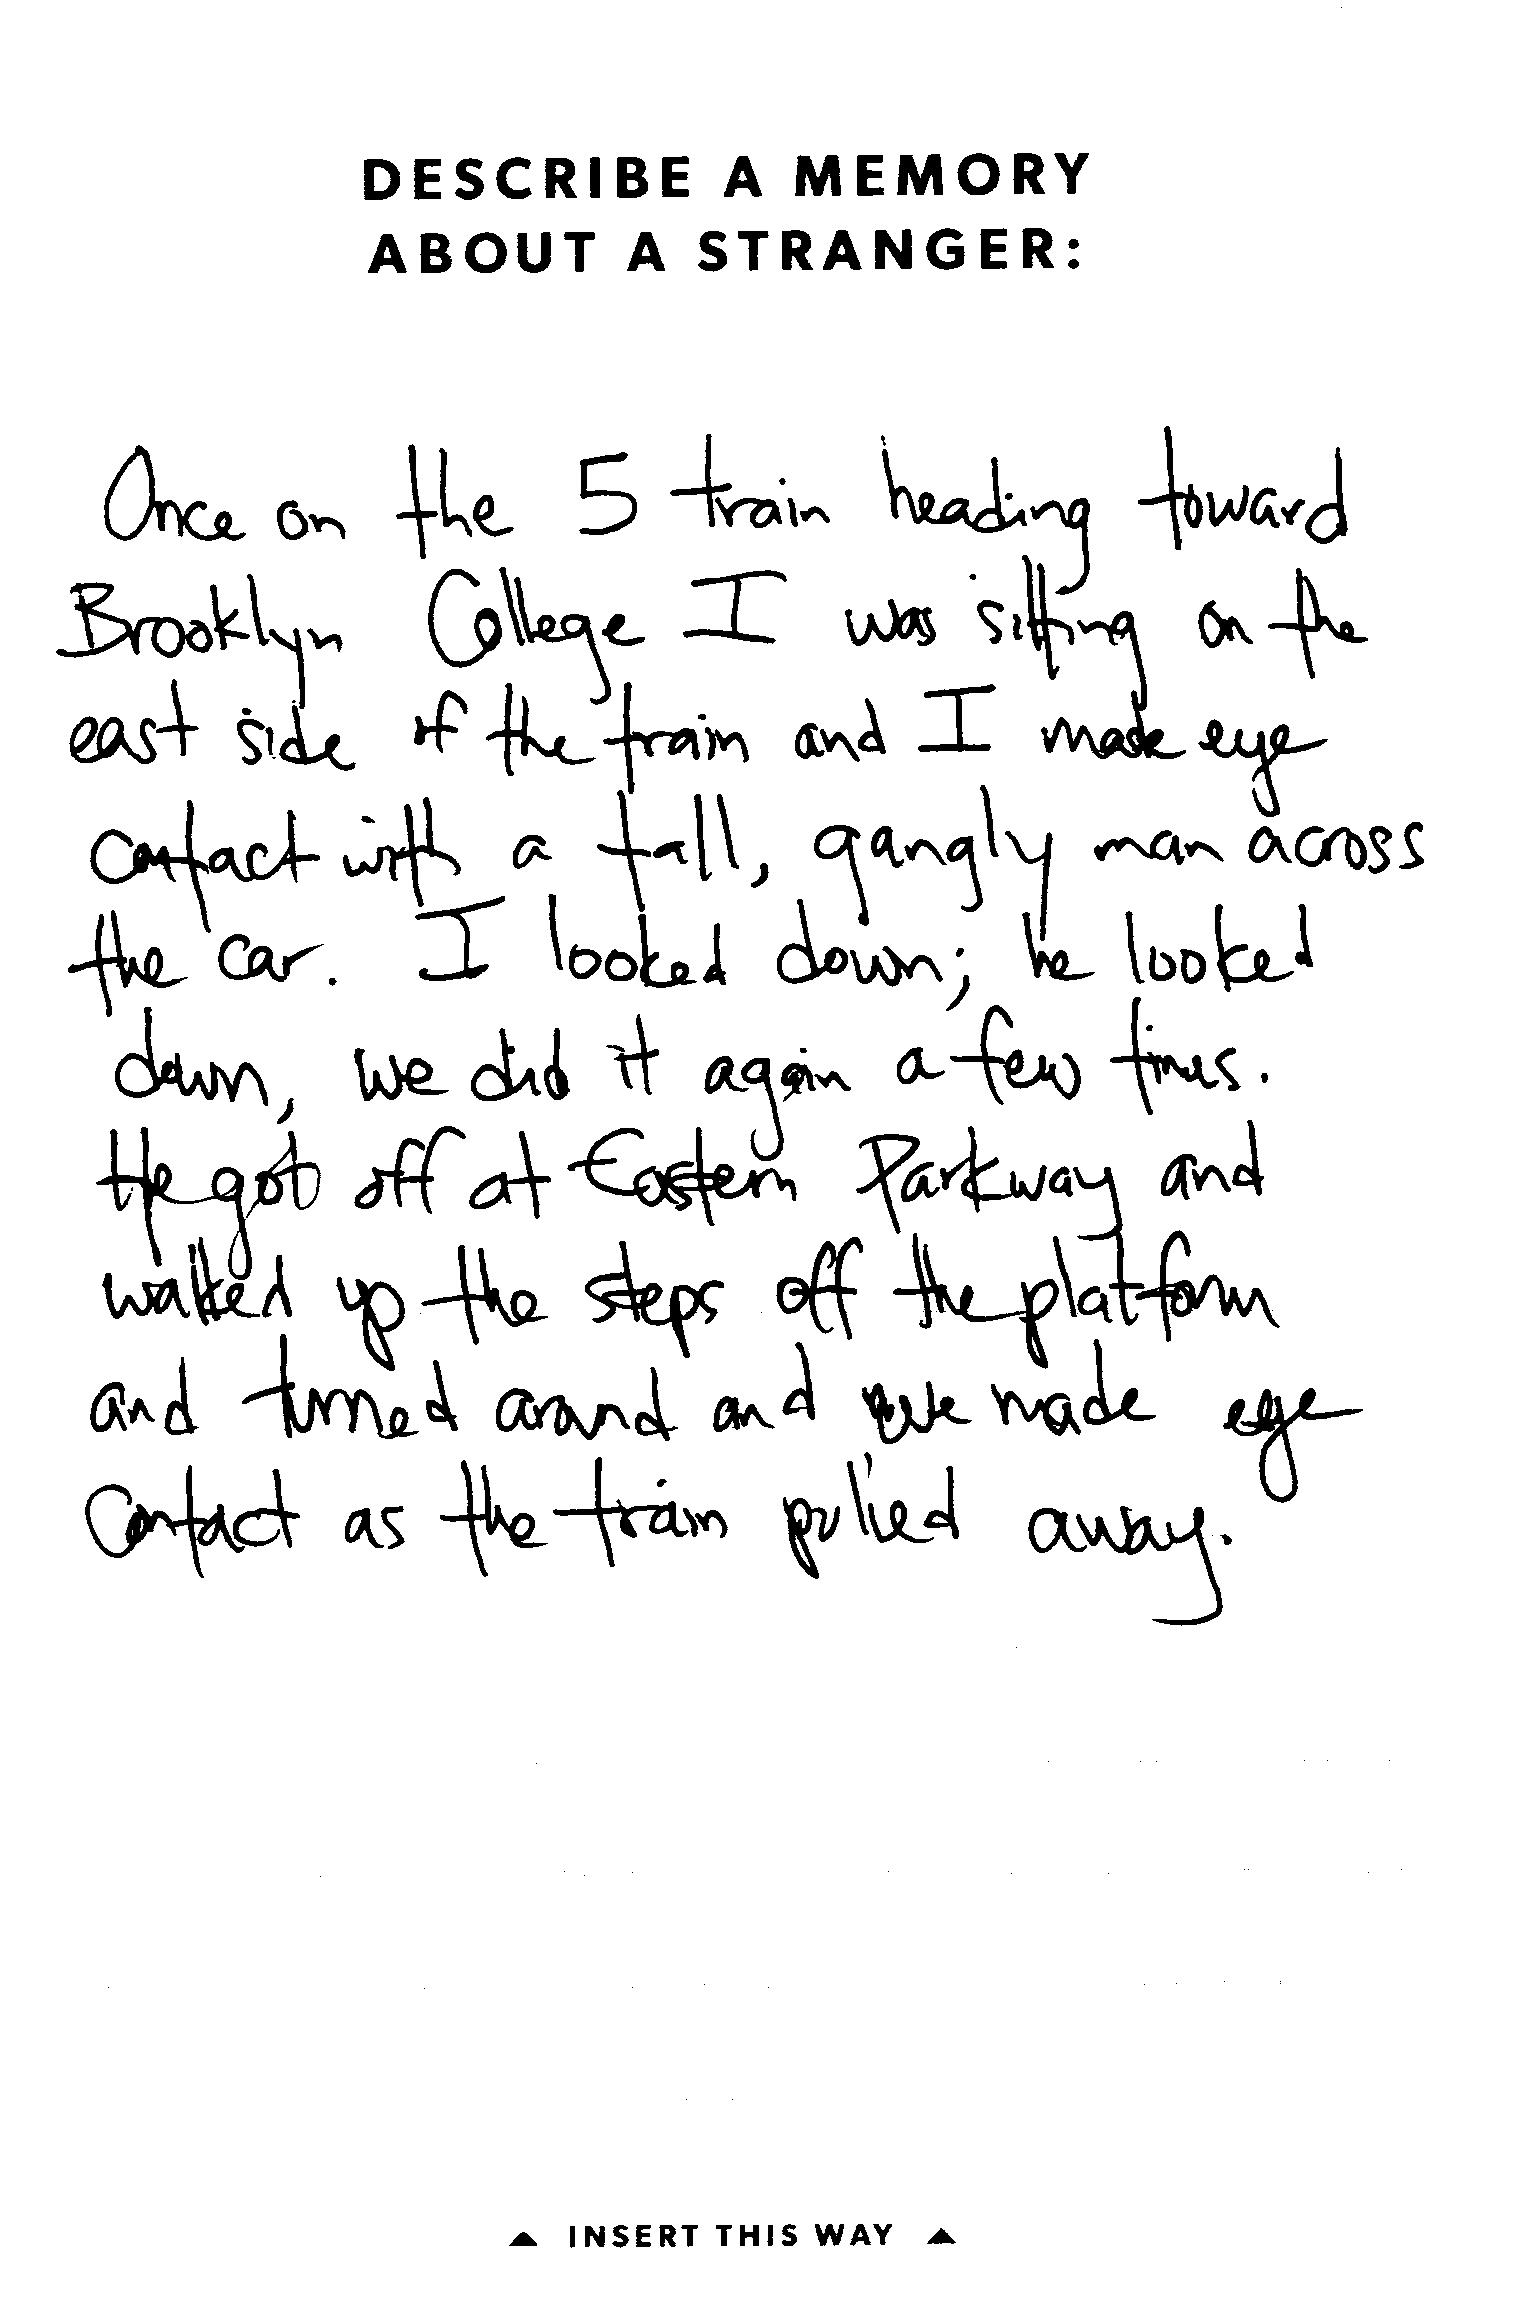 DESCRIBE A MEMORY
ABOUT A STRANGER:
Once on the 5 train heading toward
Brooklyn College I was sitting on the
east side of the train and I made eye
contact with a tall, gangly man across
the car. I looked down; he looked
down, we did it again a few times.
He got off at Eastern Parkway and
walked up the steps off the platform
and turned around and we made eye
contact as the train pulled away.
▲ INSERT THIS WAY ▲